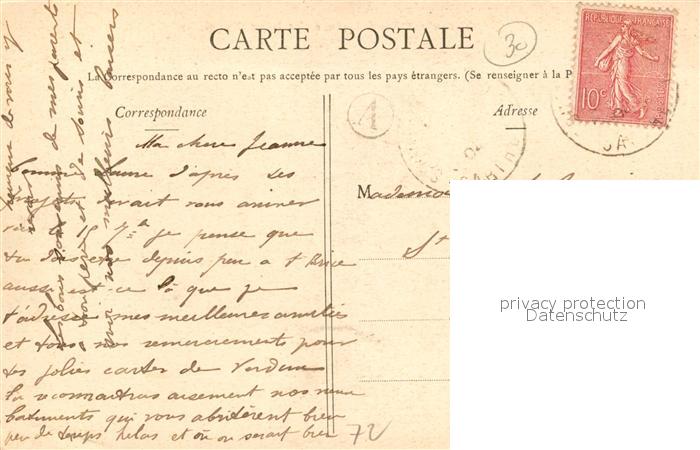 CARTE POSTALE
30
La Correspondance au recto n'est pas acceptée par tous les pays étrangers. (Se renseigner à la P
Correspondance
Adresse
RÉPUBLIQUE FRANÇAISE
10c
1
Ma chère Jeanne
d'après ses
projets devait vous amener
le 15 je pense que
tu depuis peu à St Brice
aussi est-ce là que je
t'adresse mes meilleures amitiés
et tous nos remerciements pour
tes jolies cartes de Verdun
Tu reconnaitras aisement nos
batiments qui vous abritèrent bien
peu de temps helas et où on serait bien
72
Mademoi
St
de mes parents
et
nos meilleurs baisers
privacy protection
Datenschutz